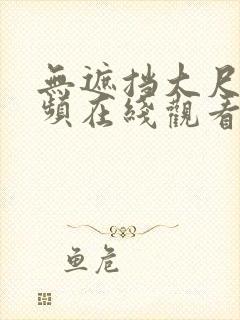 無遮挡大尺
頻在綫觀看
鱼危